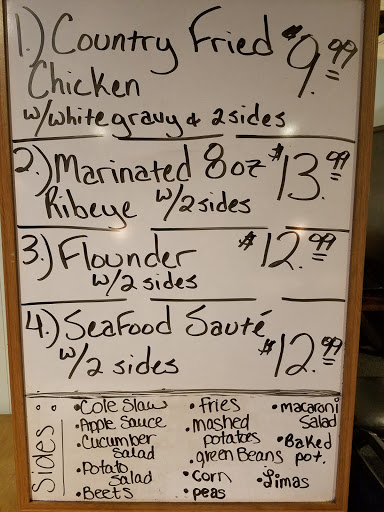 1.) Country Fried $9.99
Chicken
w/white gravy & 2 sides
2.) Marinated 8oz $13.99
Ribeye w/2 sides
3.) Flounder $12.99
w/2 sides
4.) Seafood Sauté
w/2 sides $12.99
Sides:
• Cole Slaw
• Apple Sauce
• Cucumber
Salad
• Potato
Salad
• Beets
• fries
• mashed
potatoes
• green Beans
• Corn
• peas
• macaroni
salad
• Baked
pot.
• Limas